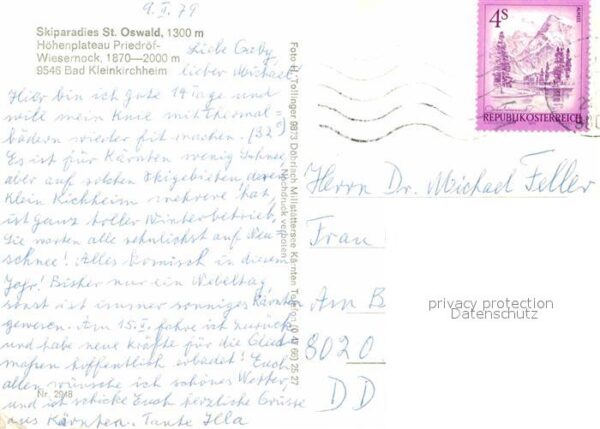 9. II. 79
Skiparadies St. Oswald, 1300 m
Höhenplateau Priedröf-
Wiesernock, 1870—2000 m
9546 Bad Kleinkirchheim
Liebe Gaby,
lieber Michael
Hier bin ich gute 14 Tage und
will mein Knie mit Thermal-
bädern wieder fit machen. (32°)
Es ist für Kärnten wenig Schnee
aber auf solchen Skigebieten deren
Klein Kichheim mehrere hat,
ist ganz toller Winterbetrieb,
Sie warten alle sehnlichst auf Neu-
schnee! Alles komisch in diesem
Jahr! Bisher nur ein Nebeltag,
sonst ist immer sonniges Kärnten
gewesen. Am 15. II. fahre ich zurück
und habe neue Kräfte für die
hoffentlich Euch
allen wünsche ich schönes Wetter,
Nr. 2948
und ich schicke Euch herzliche Grüsse
aus Kärnten. Tante Illa
Foto H. Tollinger 9873 Döbriach Millstättersee Kärnten Telefon (0 42 46) 25 27
Nachdruck verboten
4S
ALMSEE
REPUBLIK ÖSTERREICH
Herrn Dr. Michael Feller
Frau
Am B
8020
DD
privacy protection
Datenschutz